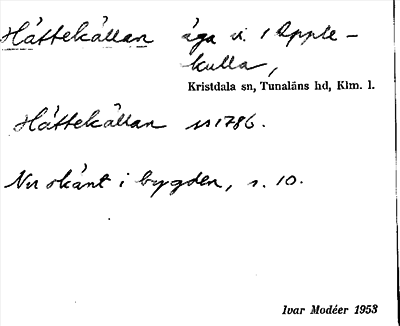 Håttekällan äga vi. 1 Äpple-
kulla,
Kristdala sn, Tunaläns hd, Klm. l.
Håttekällan ss 1786.
Nu okänt i bygden, s. 10.
Ivar Modéer 1953